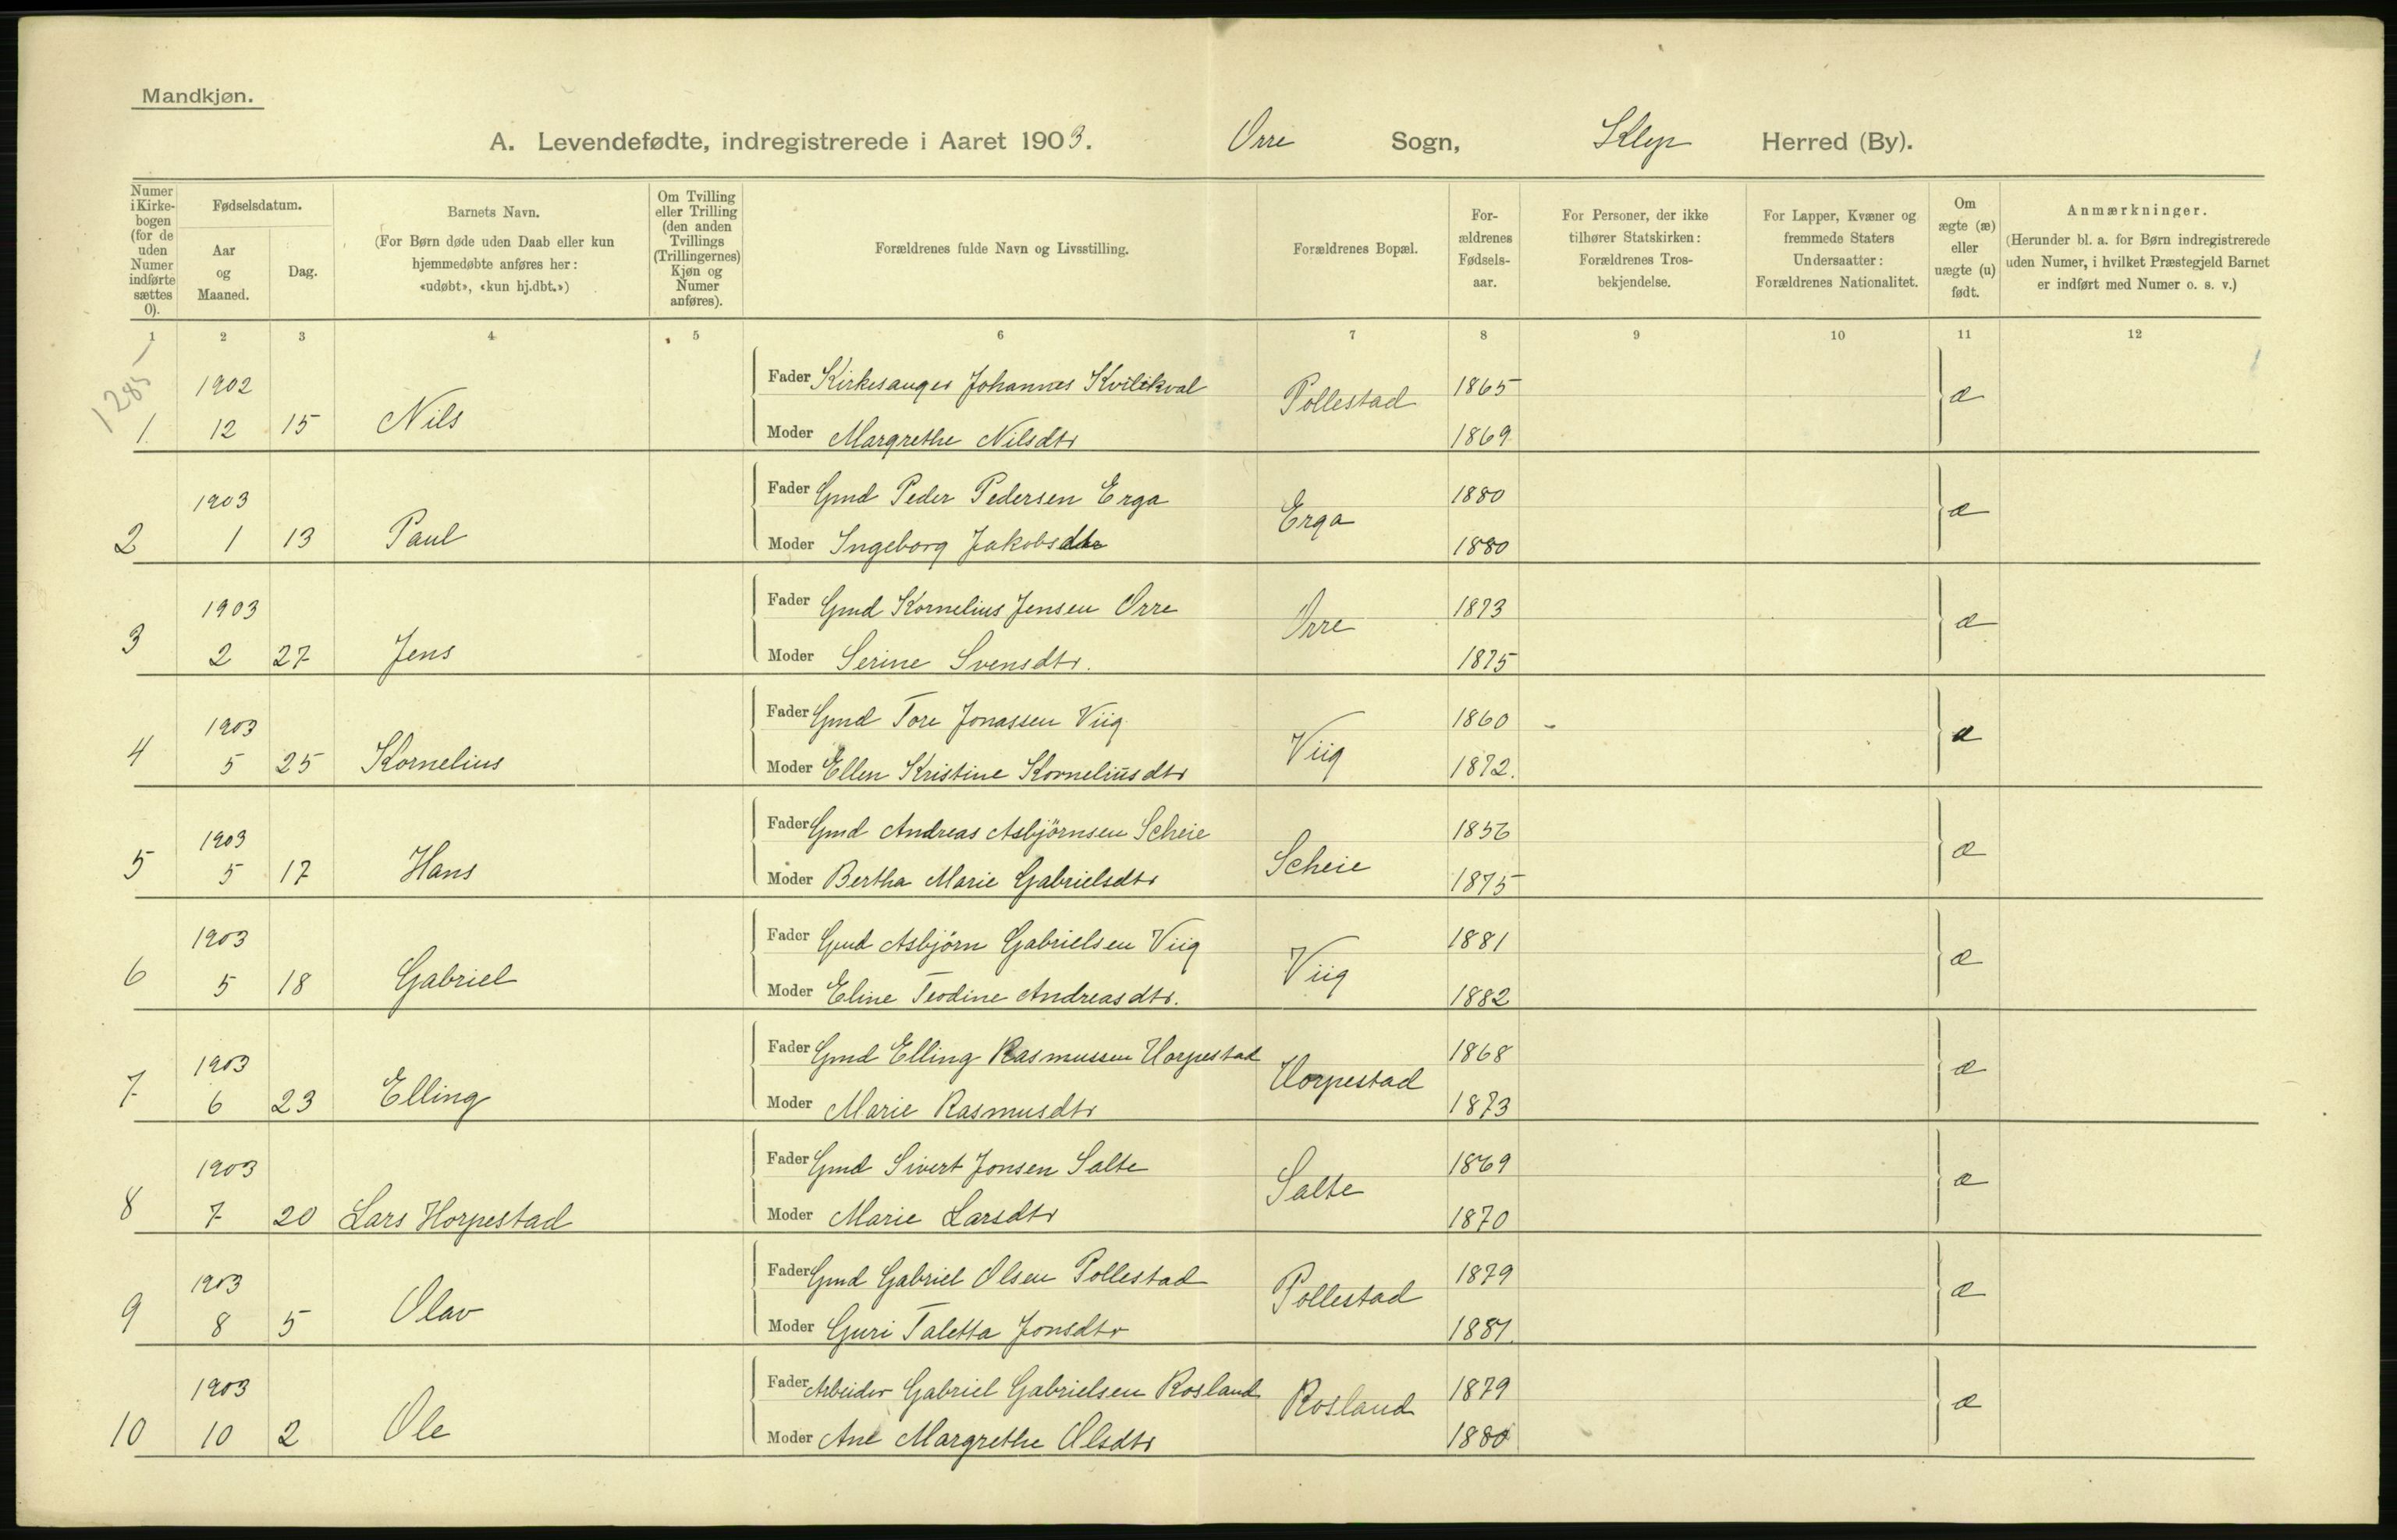 Mandkjøn.
A. Levendefødte, indregistrerede i Aaret 1903. Orre Sogn, Klep Herred (By).
Numer i Kirkebogen (for de uden Numer indførte sættes 0).
Fødselsdatum.
Aar og Maaned.
Dag.
Barnets Navn.
(For Børn døde uden Daab eller kun hjemmedøbte anføres her: «udøbt», «kun hj.dbt.»)
Om Tvilling eller Trilling (den anden Tvillings (Trillingernes) Kjøn og Numer anføres).
Forældrenes fulde Navn og Livsstilling.
Forældrenes Bopæl.
For-ældrenes Fødsels-aar.
For Personer, der ikke tilhører Statskirken: Forældrenes Tros-bekjendelse.
For Lapper, Kvæner og fremmede Staters Undersaatter: Forældrenes Nationalitet.
Om ægte (æ) eller uægte (u) født.
Anmærkninger.
(Herunder bl. a. for Børn indregistrerede uden Numer, i hvilket Præstegjeld Barnet er indført med Numer o. s. v.)
1 2 3 4 5 6 7 8 9 10 11 12
1285
1902 Fader Kirkesanger Johannes Kvilekval Pollestad 1865 æ
1. 12 15 Nils Moder Margrethe Nilsdtr 1869
1903 Fader Gmd Peder Pedersen Erga Erga 1880 æ
2 1 13 Paul Moder Ingeborg Jakobsdtr 1880
1903 Fader Gmd Kornelius Jensen Orre Orre 1873 æ
3 2 27 Jens Moder Serine Svensdtr. 1875
1903 Fader Gmd Tore Jonassen Viig Viig 1860 æ
4 5 25 Kornelius Moder Ellen Kristine Korneliusdtr 1872.
1903 Fader Gmd Andreas Asbjörnsen Scheie Scheie 1856 æ
5 5 17 Hans Moder Bertha Marie Gabrielsdtr 1875
1903 Fader Gmd Asbjörn Gabrielsen Viig Viig 1881 æ
6 5 18 Gabriel Moder Eline Teodine Andreasdtr. 1882
1903 Fader Gmd Elling Rasmussen Horpestad Horpestad 1868 æ
7 6 23 Elling Moder Marie Rasmusdtr 1873
1903 Fader Gmd Sivert Jonsen Salte Salte 1869 æ
8 7 20 Lars Horpestad Moder Marie Larsdtr 1870
1903 Fader Gmd Gabriel Olsen Pollestad Pollestad 1879 æ
9 8 5 Olav Moder Guri Taletta Jonsdtr 1881.
1903 Fader Arbeider Gabriel Gabrielsen Rosland Rosland 1879 æ
10 10 2 Ole Moder Ane Margrethe Olsdtr 1880